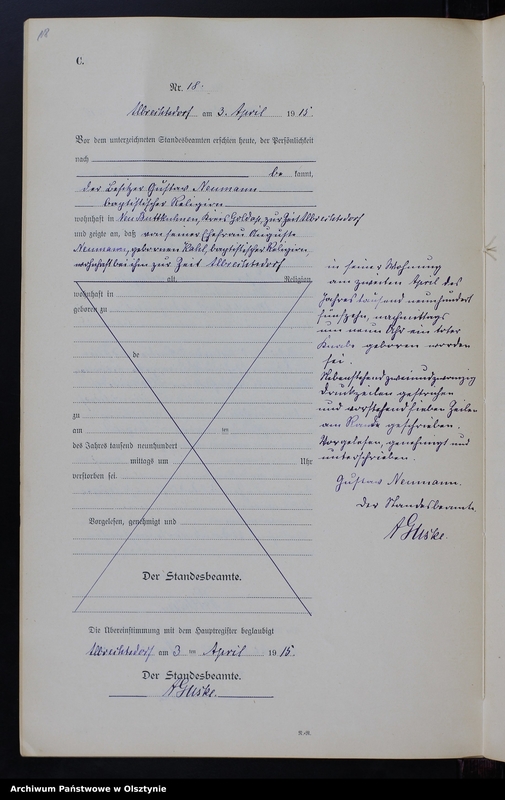 18
C.
Nr. 18.
Albrechtsdorf am 3. April 1915.
Vor dem unterzeichneten Standesbeamten erschien heute, der Persönlichkeit
nach
be kannt,
der Besitzer Gustav Neumann
baptistischer Religion
wohnhaft in Neu Buttkuhnen, Kreis Goldap, zur Zeit Albrechtsdorf
und zeigte an, daß von seiner Ehefrau Auguste
Neumann, geborenen Kahl, baptistischer Religion,
wohnhaft bei ihm zur Zeit Albrechtsdorf
alt, Religion,
wohnhaft in
geboren zu
de
zu
am ten
des Jahres tausend neunhundert
mittags um Uhr
verstorben sei.
Vorgelesen, genehmigt und
Der Standesbeamte.
in seiner Wohnung
am zweiten April des
Jahres tausend neunhundert
fünfzehn, nachmittags
um neun Uhr ein toter
Knabe geboren worden
sei.
Nebenstehend zweiundzwanzig
Druckzeilen gestrichen
und vorstehend sieben Zeilen
am Rande geschrieben.
Vorgelesen, genehmigt und
unterschrieben.
Gustav Neumann.
Der Standesbeamte.
Die Übereinstimmung mit dem Hauptregister beglaubigt
Albrechtsdorf am 3 ten April 1915.
Der Standesbeamte.
R.-R.
Archiwum Państwowe w Olsztynie